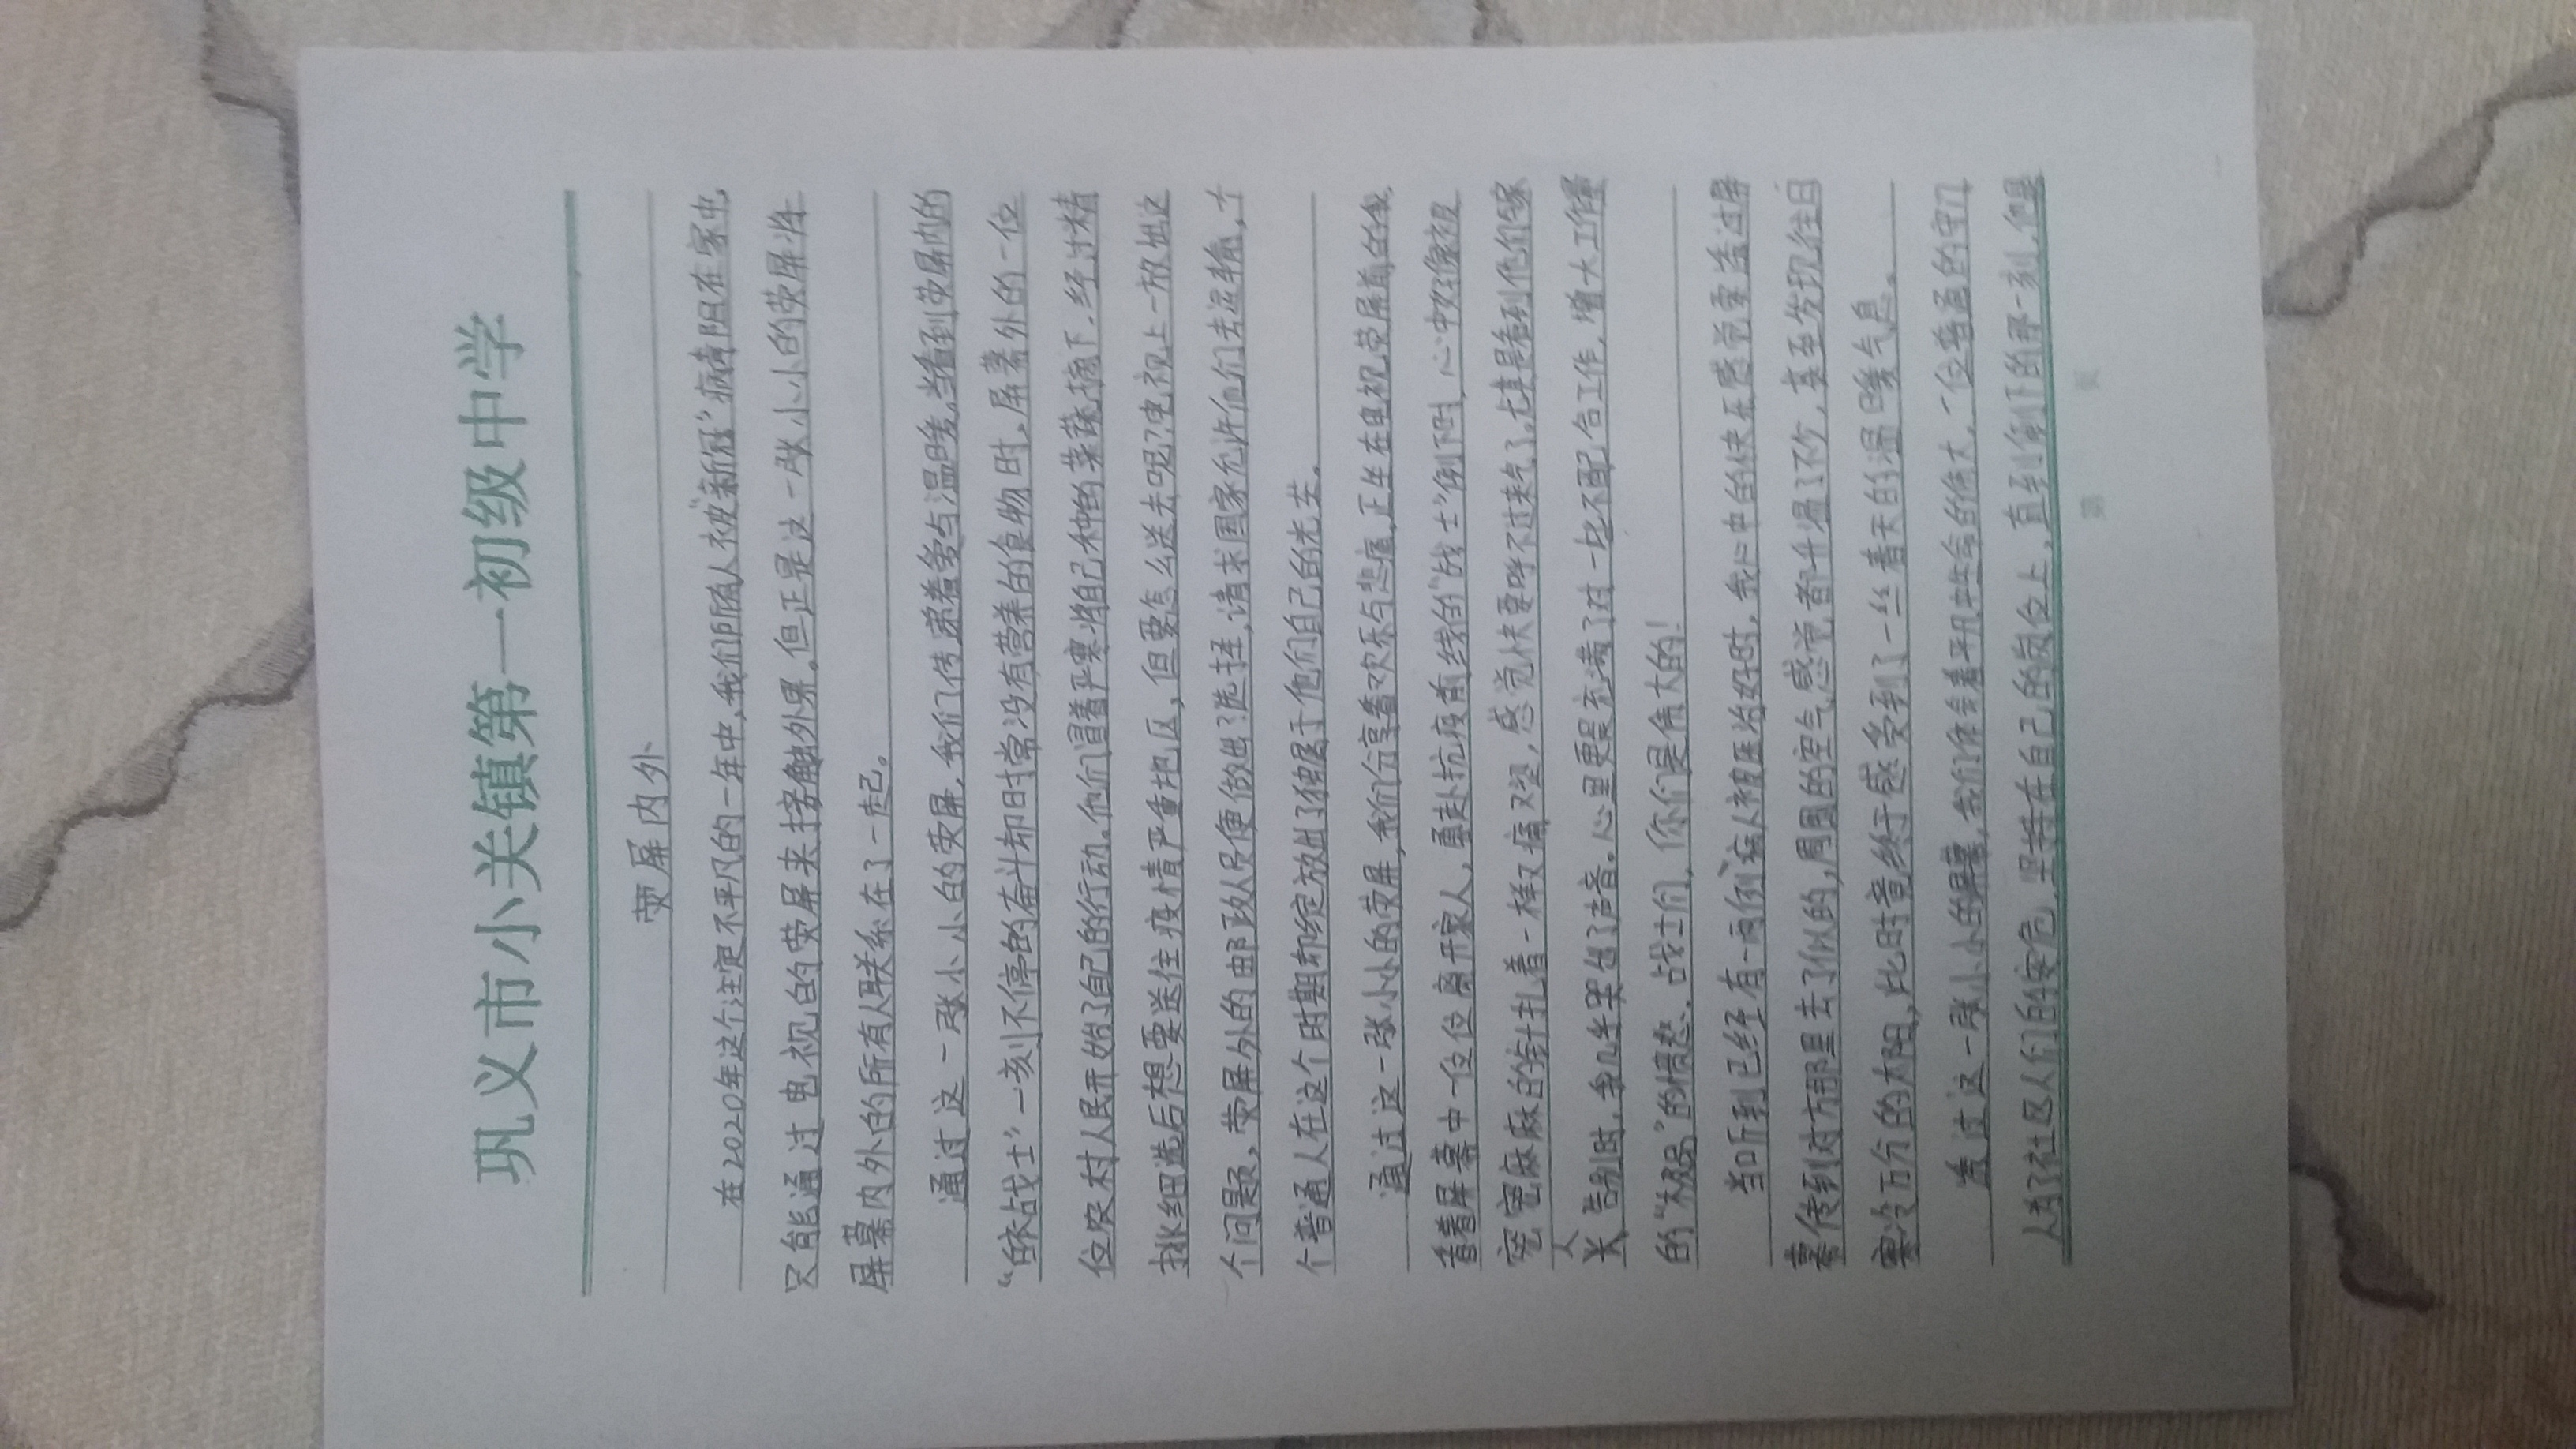 巩义市小关镇第一初级中学
荧屏内外
在2020年这个注定不平凡的一年中,我们所有人被“新冠”病毒阻在家中,
只能通过电视的荧屏来接触外界。但正是这一张小小的荧屏将
屏幕内外的所有人联系在了一起。
通过这一张小小的荧屏,我们传递着爱与温暖。当看到荧屏内的
“白衣战士”一刻不停的奋斗却时常没有营养的食物时,屏幕外的一位
位农村人民开始了自己的行动。他们冒着严寒将自己种的菜蔬摘下,经过精
挑细选后想要送往疫情严重地区,但要怎么送去呢?电视上一放出这
个问题,荧屏外的邮政人员便做出了选择,请求国家允许他们去运输,一
个普通人在这个时期却绽放出了独属于他们自己的光芒。
通过这一张小小的荧屏,我们分享着欢乐与悲痛,正坐在电视荧屏前的我,
看着屏幕中一位位离开家人,勇赴抗疫前线的“战士”倒下时,心中好像被
密密麻麻的针扎着一样又痛又涩,感觉快要呼不过来气了。尤其是看到他们家
人
告别时,我几乎哭出了声音。心里更是充满了对一些不配合工作,增大工作量
的“极品”的愤怒。战士们,你们是伟大的!
当听到已经有一两例病人被医治好时,我心中的快乐感觉要透过屏
幕传到对方那里去了似的,周围的空气感觉都升温了不少,甚至发现往日
寒冷万分的太阳,此时竟终于感受到了一丝春天的温暖气息。
透过这一张小小的屏幕,我们体会着平凡生命的伟大,一位普通的守门
人为了社区人们的安危,坚持在自己的岗位上,直到倒下的那一刻,他是
第 页